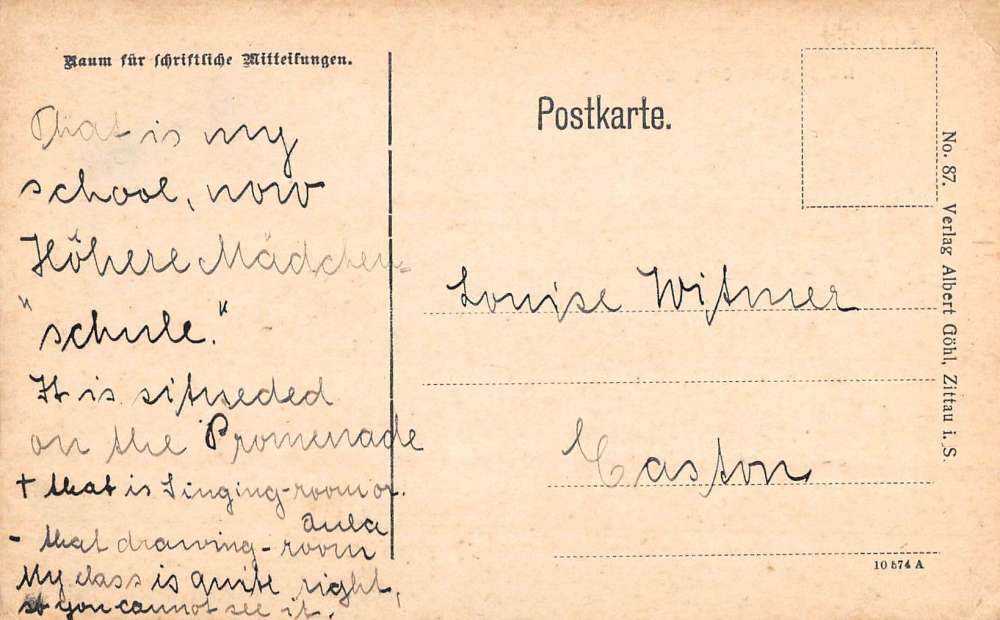 Raum für schriftliche Mitteilungen.
Postkarte.
That is my
school, now
Höhere Mädchen-
"schule."
It is situeded
on the Promenade
+ that is Singing-room or.
aula
- that drawing-room
My class is quite right,
you cannot see it.
Louise Witmer
Caston
No. 87. Verlag Albert Göhl, Zittau i. S.
10 574 A